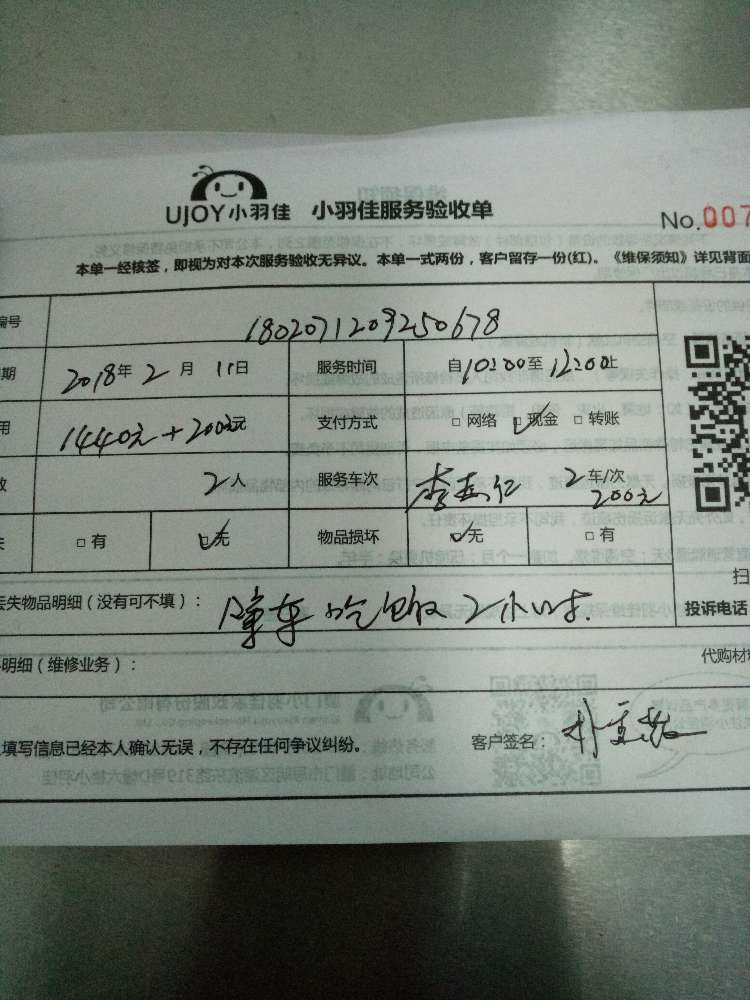 UJOY小羽佳 小羽佳服务验收单
No.007
本单一经核签，即视为对本次服务验收无异议。本单一式两份，客户留存一份(红)。《维保须知》详见背面
编号 1802071209250678
期 2018年2月11日 服务时间 自10:00至12:00止
用 1440元+200元 支付方式 □网络 ☑现金 □转账
数 2人 服务车次 2车/次
200元
失 □有 ☑无 物品损坏 ☑无 □有
丢失物品明细（没有可不填）： 2小时.
扫
投诉电话
明细（维修业务）： 代购材料
填写信息已经本人确认无误，不存在任何争议纠纷。 客户签名：